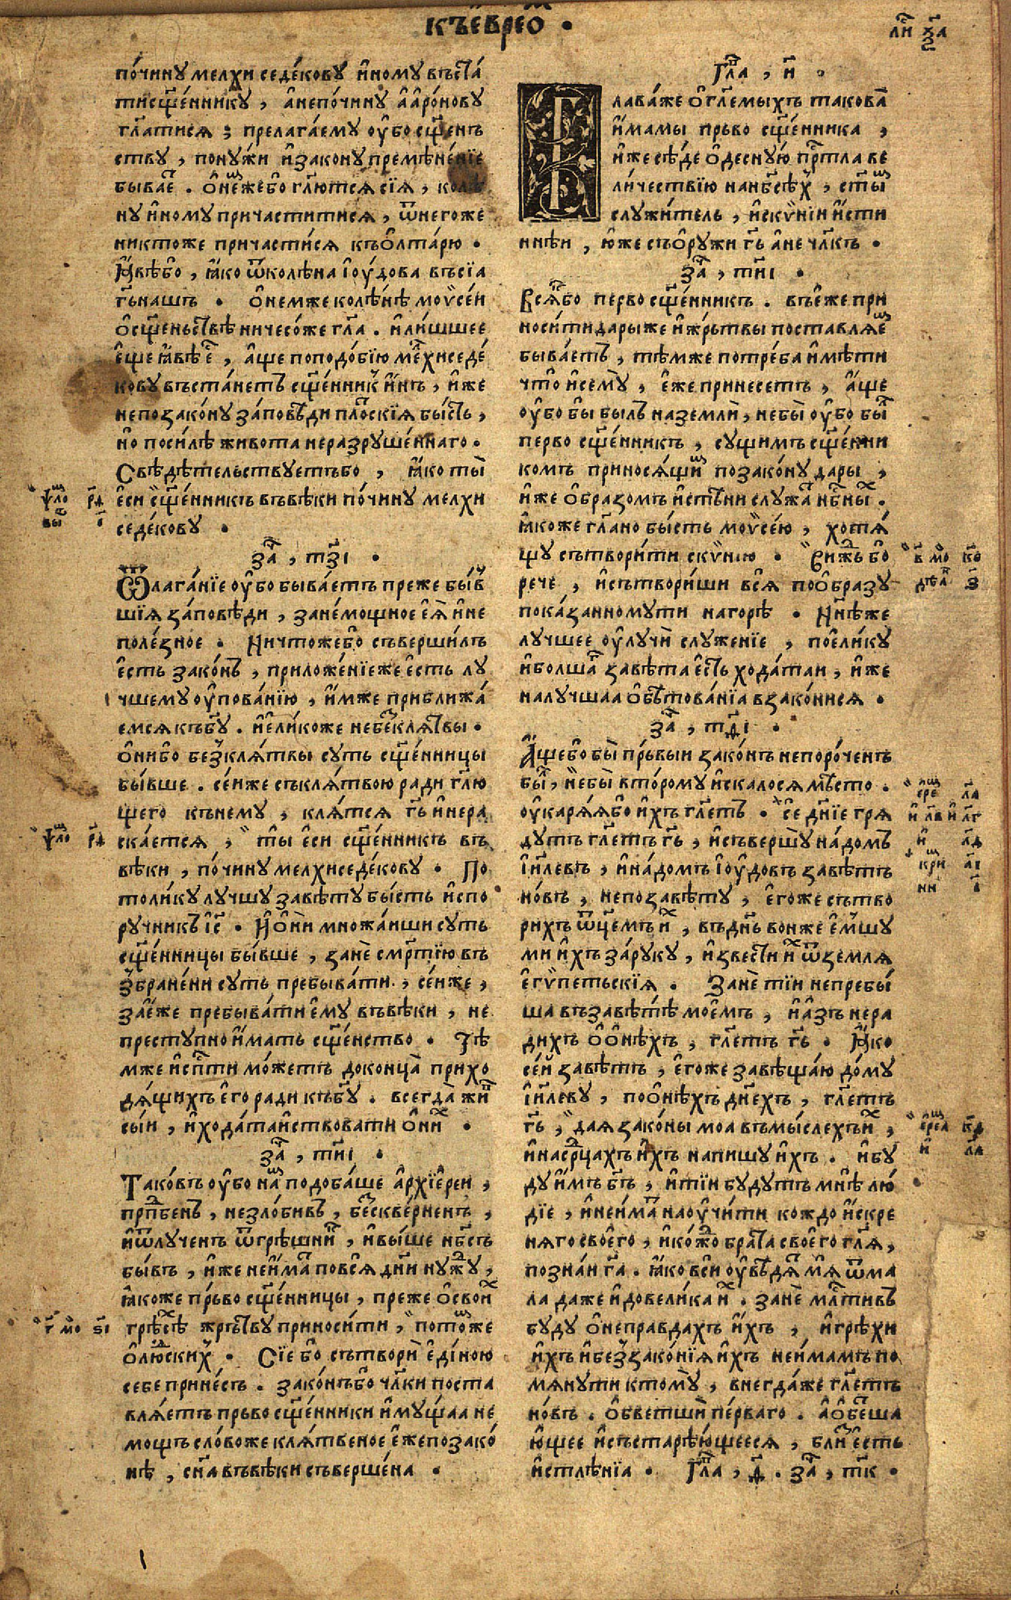 къ еврео҃м .
ли҃ ха҃
по́чину мелхиседе́кову и҆ному въста́
ти сщ҃еннику , а҆ не по́чину а҆аро́нову
гл҃атися ; прелага́ему оу҆́бо сщ҃енъ
ству , по ну́жи и҆ закону премѣне́нїе
быва́е . о҆ не́мже бо гл҃ются сїя҆ , колѣ
ну и҆ному причастити́ся , ѿ негоже
никтоже причасти́ся къ о҆лтарю .
И҆вѣ бо , ꙗ҆́ко ѿ колѣна і҆оу́дова въсїа
гь҃ нашъ . о҆ немже колѣ́нѣ моѵсе́и
о҆ сщ҃еньствѣ ничесо́же гл҃а . и҆ ли́шшее
е҆ще ꙗ҆вѣ е҆́ , а҆́ще по подо́бїю мелхиседе́
кову въста́нетъ сщ҃енник и҆́нъ , и҆́же
не по зако́ну за́повѣди пло́тскїя бы́сть ,
но по силѣ живота неразруше́ннаго .
Свѣдѣ́тельствуетъ бо , ꙗ҆́ко ты̀
е҆сѝ сщ҃енникъ въ вѣ́ки по́чину мелхи
седе́кову .
за҃ , тз҃і .
Ѿлага́нїе оу҆́бо быва́етъ преже бы́в
шїя за́повѣди , зане́мощное е҆я̀ и҆ не
поле́зное . Ничтоже бо съвершилъ
е҆сть зако́нъ , приложе́нїе же е҆сть лу
чшему оу҆пова́нїю , и҆́мже приближа́
емся къ бг҃у . и҆ ели́коже не без кля́твы .
о҆ни́ бо без кля́твы суть сщ҃енницы
бы́вше . се́и же съ кля́твою ради гл҃ю
щего къ нему , кля́тся гь҃ и҆ не ра
скается , ты̀ е҆сѝ сщ҃енникъ въ
вѣки , по́чину мелхиседе́кову . По
толи́ку лу́чшу завѣ́ту бы́сть и҆спо
ру́чникъ і҆с҃ . И҆ о҆ни мно́жаиши суть
сщ҃енницы бы́вше , занѐ сме́ртїю въ
збране́ни суть пребыва́ти , се́и же ,
зане́же пребыва́ти е҆му въ вѣки , не
престу́пно и҆́мать сщ҃енство . Тѣ
мже и҆ спⷭ҇ти мо́жетъ до конца̀ прихо
дя́щихъ е҆го ради къ бг҃у . всегда̀ жив
сы́и , и҆ хода́таиствовати о҆ ни́х .
за҃ , ти҃і .
Таковъ оу҆бо нам подоба́ше а҆рхїере́и ,
прⷣпбенъ , незло́бивъ , бескве́рненъ ,
и҆ ѿлученъ ѿ грѣшник , и҆ вы́ше нб҃съ
бы́въ , и҆́же не и҆́мат по вся̀ дни̑ ну́жду ,
ꙗ҆́коже пръвосщ҃енницы , преже о҆ свои҆х
грѣ́сѣх же́ртву приноси́ти , пото́мже
о҆ людских . Сїе бо сътворѝ е҆ди́ною
себе прине́съ . зако́нъ бо чл҃ки поста
вляетъ пръвосщ҃енники и҆мущаа не
мощь сло́во же кля́твеное е҆́же по зако́
нѣ , сн҃а въ вѣ́ки съверше́на .
Гла҃ , и҃ .
Глава́ же о҆ гл҃емыхъ такова̀
и҆́мамы пръвосщ҃енника ,
и҆́же сѣ́де о҆десную прⷭ҇тла ве
ли́чествїю на нб҃сѣх , сты̑м
служи́тель , и҆ скѵ́нїи и҆́сти
ннѣи , ю҆́же съ о҆ружи гь҃ а҆ не чл҃къ .
за҃ , ти҃і .
Всяк бо первосщ҃енникъ . въ е҆́же при
носи́ти да́ры же и҆ же́ртвы поставля́ем
быва́етъ , тѣмже потре́ба и҆мѣ́ти
что̀ и҆ сему̀ , е҆́же принесетъ , а҆́ще
оу҆́бо бы былъ на земли̑ , не бы̀ оу҆́бо был
первосщ҃енникъ , сущимъ сщ҃енни
комъ принося́щим по зако́ну да́ры ,
и҆́же о҆́бразомъ и҆ стѣни слу́жат нбⷭ҇ным .
ꙗ҆́коже гл҃ано бы́сть моѵсе́ю , хотя́
щу сътвори́ти скѵ́нїю . Ви́ждь бо
рече , и҆ сътвори́ши вся̀ по о҆́бразу
пока́занному ти на горѣ . Нн҃ѣ же
лу́чшее оу҆лучѝ служе́нїе , по е҆ли́ку
и҆ болша̀ завѣ́та е҆́сть хода́таи , и҆́же
на лу́чшаа о҆бѣтова́нїа взако́нися .
за҃ , тѳ҃і .
А҆́ще бо бы̀ пръвыи зако́нъ непоро́ченъ
был , не бы̀ второ́му и҆ска́лося мѣ́сто .
оу҆каря́я бо и҆́хъ гл҃етъ . се дн҃їе гря
ду́тъ гл҃етъ гь҃ , и҆ съвершу̀ на до́мъ
і҆и҃левъ , и҆ на до́мъ і҆оу́довъ завѣ́тъ
но́въ , не по завѣ́ту , е҆го́же сътво
рихъ ѿце́мъ и҆х , въ дн҃ь во́нже е҆́мшу
ми и҆́хъ за́ руку , и҆звестѝ и҆х ѿ земля
е҆гѵ́петьскїя . Занѐ тїи непребы́
ша въ завѣтѣ мое́мъ , и҆ а҆зъ нера
ди́хъ о҆ о҆нѣхъ , гл҃етъ гь҃ . Ꙗ҆́ко
се́й завѣ́тъ , е҆го́же завѣща́ю до́му
і҆и҃леву , по о҆нѣхъ дн҃ехъ , гл҃етъ
гь҃ , дая̀ зако́ны моа въ мы́слехъ и҆х ,
и҆ на се́рдцахъ и҆́хъ напишу и҆́хъ . и҆ бу
ду и҆́мъ бг҃ъ , и҆ тїи будутъ мнѣ лю́
дїе , и҆ не и҆́мат наоучи́ти кождо и҆́скре
няго свое́го , и҆ ко́ждо бра́та свое́го гл҃я ,
позна́и га҃ . ꙗ҆́ко вси̑ оу҆вѣдят мя̀ ѿ ма
ла даже и҆ до вели́ка и҆х . занѐ млⷭ҇тивъ
буду о҆ непра́вдахъ и҆́хъ , и҆ грѣхи
и҆́хъ и҆ беззако́нїя и҆́хъ не и҆́мамъ по
мяну́ти ктому̀ , внегда́ же гл҃етъ
но́въ . о҆бветшѝ пе́рваго . а҆ о҆бетша
ю҆щее и҆ състарѣ́ющееся , бли҆з е҆́сть
и҆стлѣ́нїа . Гла҃ , ѳ҃ . за҃ , тк҃ .
ѱало рд҃
ѱало рд҃
г҃ мо ѕ҃і
в҃ мо ко